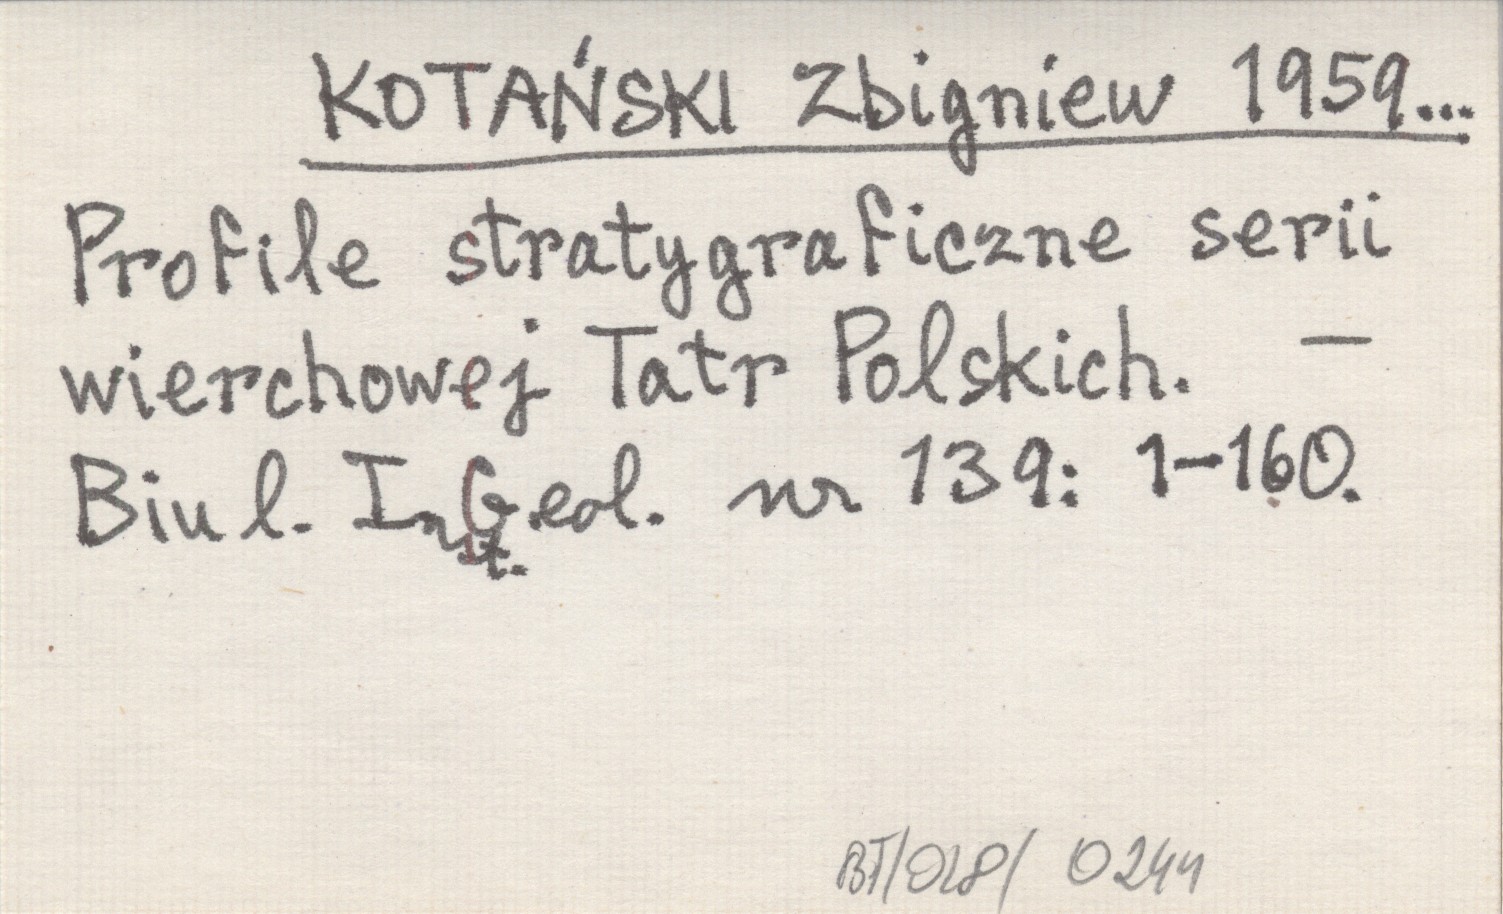 KOTAŃSKI Zbigniew 1959...
Profile stratygraficzne serii
wierchowej Tatr Polskich. —
Biul. Inst. Geol. nr 139: 1-160.
0244